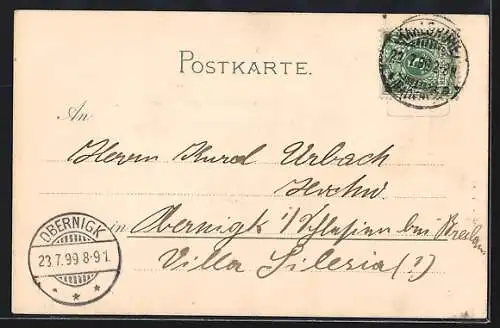 POSTKARTE.
An
Herrn Kurd Urbach
in Obernigk i/Schlesien bei Breslau
Villa Silesia (?)
OBERNIGK
23.7.99 8-9V.
* * *